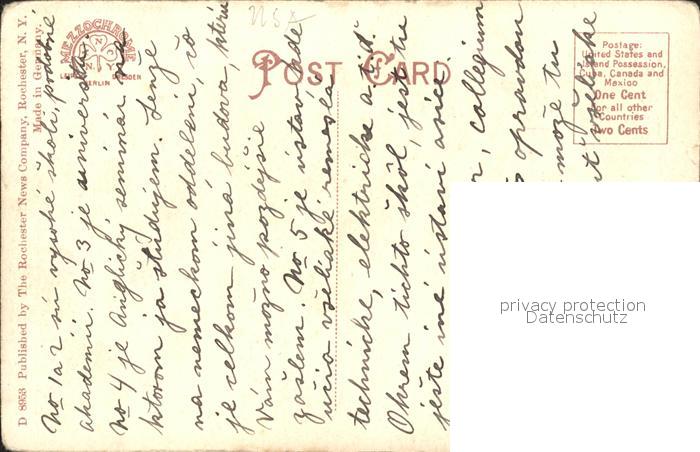 USA
D 8953 Published by The Rochester News Company, Rochester, N. Y.
Made in Germany.
MEZZOCHROME
BERLIN DRESDEN
POST CARD
Postage:
United States and
Island Possession,
Cuba, Canada and
Mexico
One Cent
For all other
Countries
Two Cents
No 1 a 2 sú vysoké školi, podobné
akademii. No 3 je universita
No 4 je Anglický seminár na
ktorom ja študujem. Lenže
na nemeckom oddelení čo
je celkom jiná budova, kterú
Vám možno pozdejšie
zašlem. No 5 je ústav kde
učia všeliaké remeslá
technické, elektrické a t.d.
Okrem tichto škôl, jest tu
ješte iné ústavi a sice:
collegium
opravdou
može tu
všeliake
privacy protection
Datenschutz